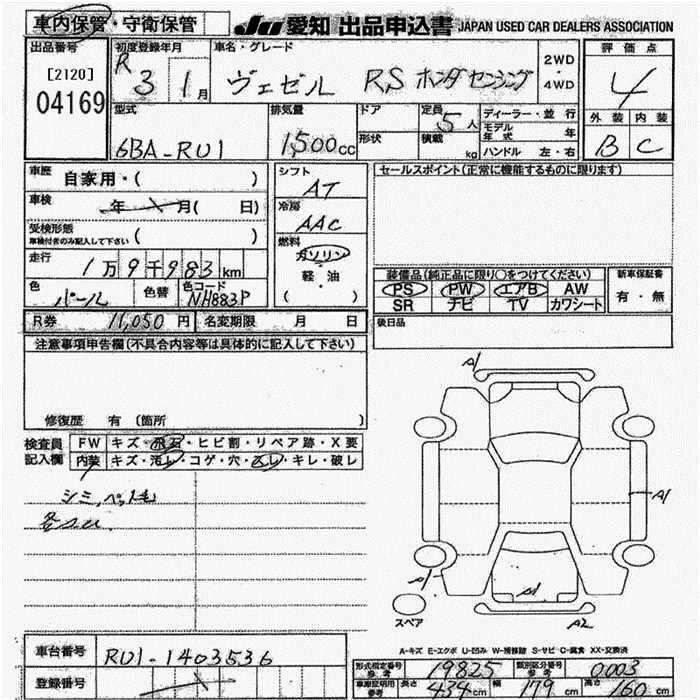 車内保管・守衛保管 JU 愛知 出品申込書 JAPAN USED CAR DEALERS ASSOCIATION
出品番号 初度登録年月 車名・グレード 評価点
[2120] R 3 1月 ヴェゼル RS ホンダセンシング 2WD・4WD 4
04169
型式 排気量 ドア 定員 5人 ディーラー・並行 外装 内装
6BA-RU1 1,500cc 形状 積載 kg モデル年式 年 B C
ハンドル 左・右
車歴 自家用・( ) シフト AT セールスポイント(正常に機能するものに限ります)
車検 年 月( 日) 冷房 AAC
受検形態 ( )
車検付きのみ記入して下さい
燃料 ガソリン
走行 1万9千983km 軽・油 装備品(純正品に限り○をつけてください) 新車保証書
( ) PS PW エアB AW 有・無
色 パール 色替 色コード NH883P SR ナビ TV カワシート
R券 11,050円 名変期限 月 日 後日品
注意事項申告欄(不具合内容等は具体的に記入して下さい)
修復歴 有 〔箇所 〕
検査員 FW キズ・飛石・ヒビ割・リペア跡・X要
記入欄 内装 キズ・汚レ・コゲ・穴・スレ・キレ・破レ
シミ、ペット毛
A1
A1
A1
A1
A2
スペア
A-キズ E-エクボ U-凹み W-補修跡 S-サビ C-腐食 XX-交換済
車台番号 RU1-1403536
登録番号
形式指定番号 参考 19825 類別区分番号 参考 0003
車庫証明用 参考 長さ 434cm 幅 179cm 高さ 160cm